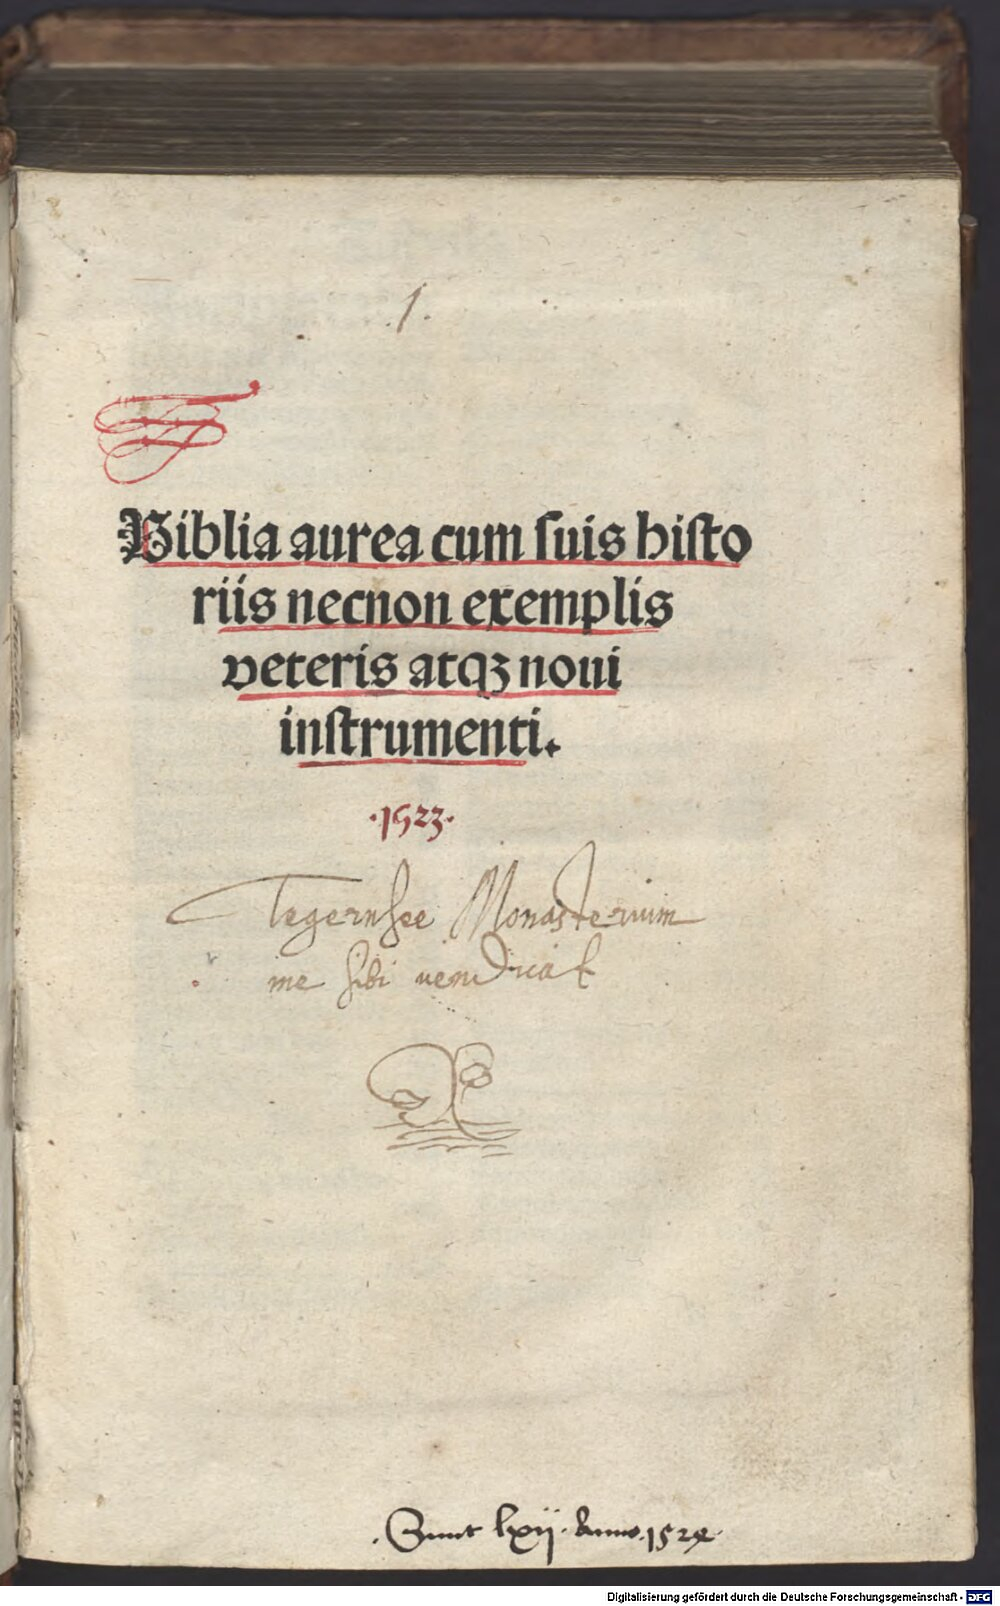 .1.
Biblia aurea cum ſuis hiſto
riis necnon exemplis
veteris atqꝫ noui
inſtrumenti.
·1523·
Tegernsee Monasterium
me sibi vendicat
Sunt lxij. Anno. 1524.
Digitalisierung gefördert durch die Deutsche Forschungsgemeinschaft - DFG